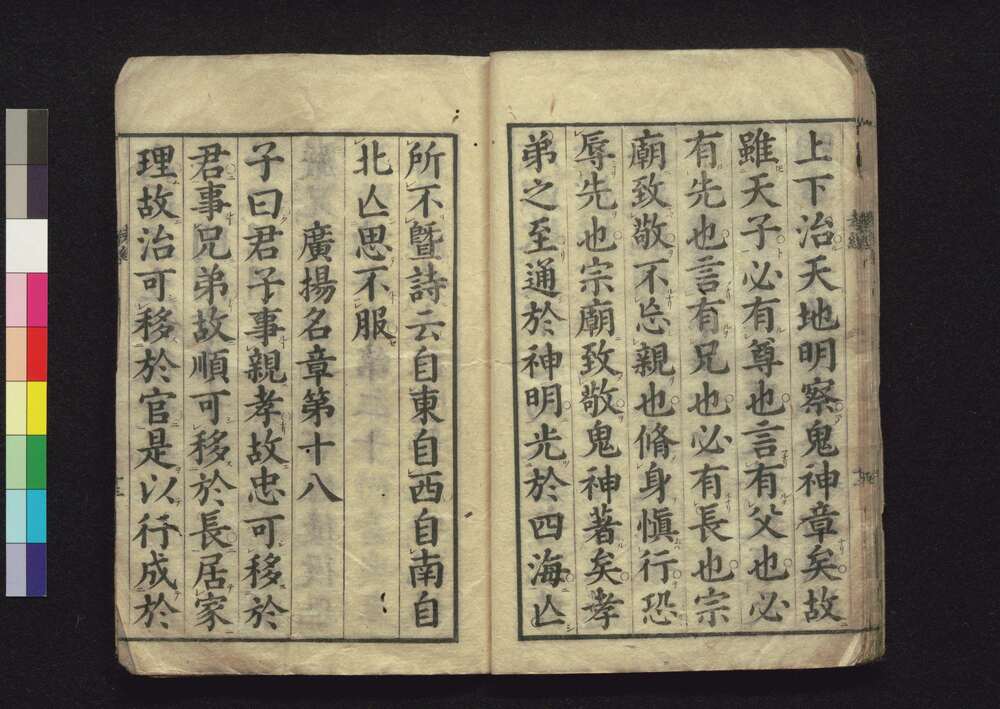 上下治天地明察鬼神章矣故
雖天子必有尊也言有父也必
有先也言有兄也必有長也宗
廟致敬不忘親也脩身慎行恐
辱先也宗廟致敬鬼神著矣孝
弟之至通於神明光於四海亾
所不曁詩云自東自西自南自
北亾思不服
廣揚名章第十八
子曰君子事親孝故忠可移於
君事兄弟故順可移於長居家
理故治可移於官是以行成於